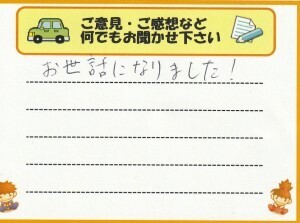 ご意見・ご感想など
何でもお聞かせ下さい
お世話になりました!